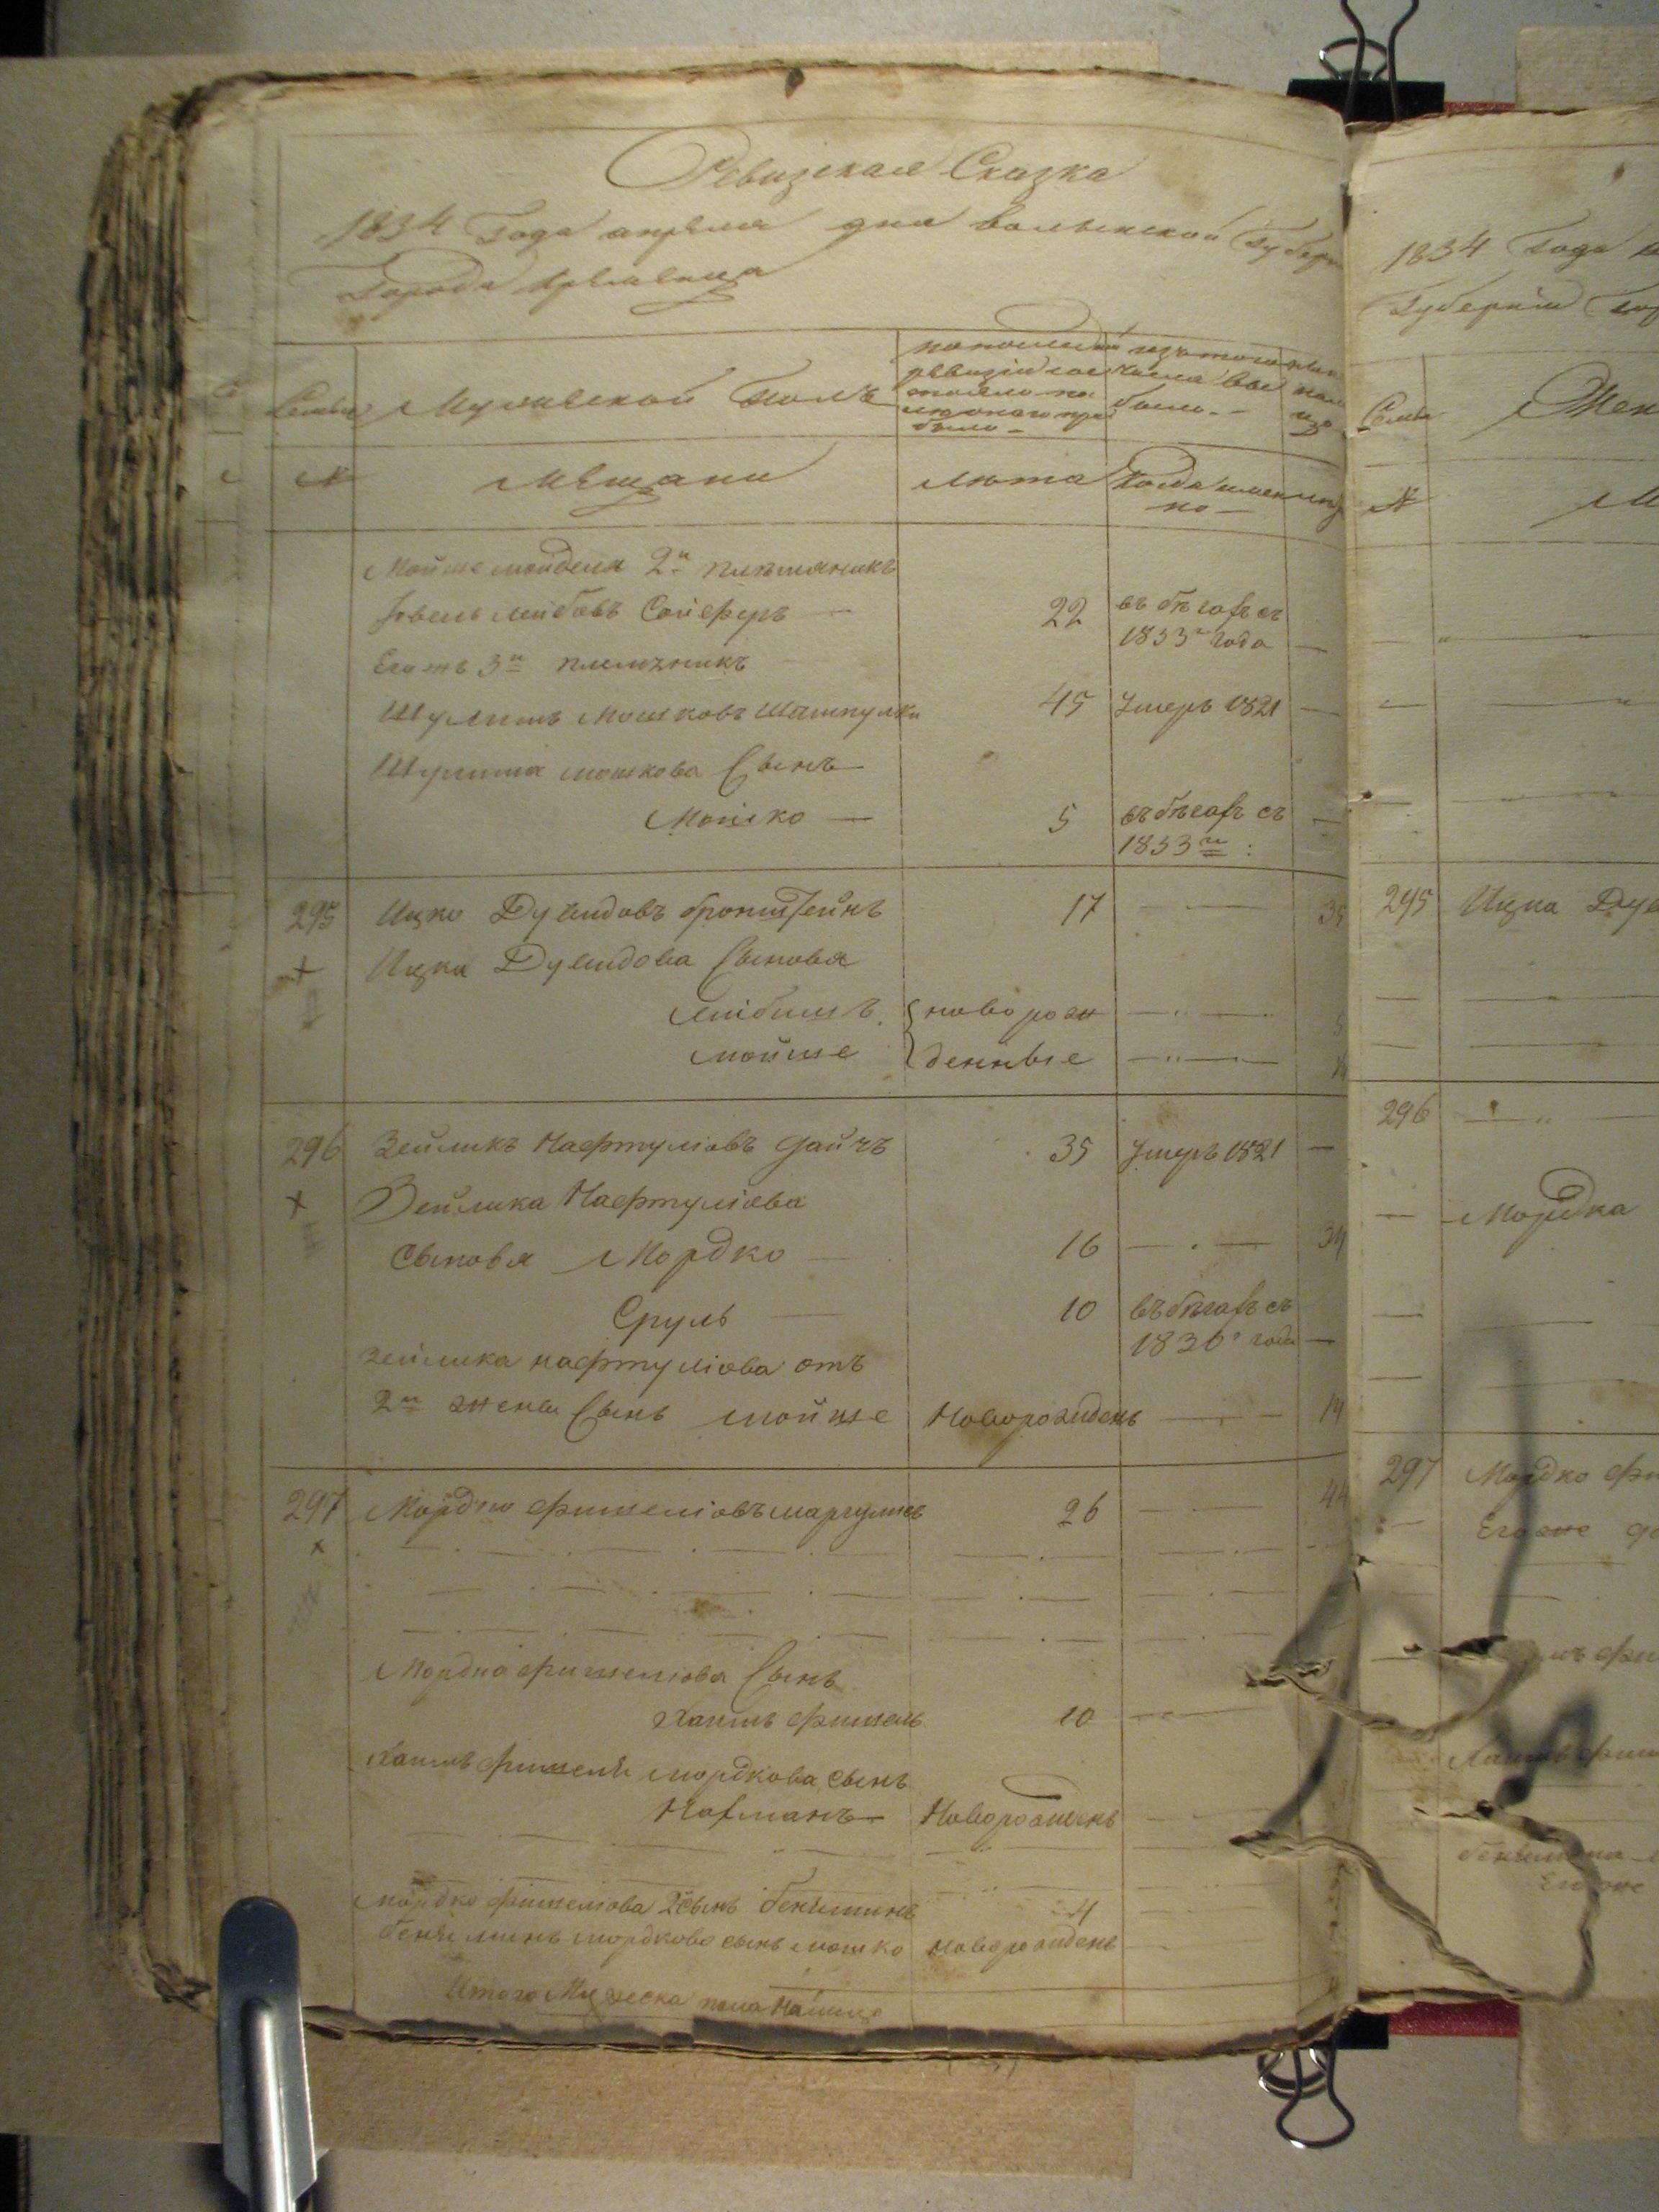 Ревизская Сказка
1834 Года апреля дня волынской Губер
Города Кременца
Семьи
Мужеской Полъ
по последней
ревизіи сос
тояло и
после оного при
было
изъ того
числа вы
было
Мещани
Лета
Когда имен
но
Мойше мойдела 2й племяникъ
Іовель лейбовъ Сойферъ 22 въ бегахъ съ
1833го года
Его жъ 3й племяникъ
Шулимъ Мошковъ 45 Умеръ 1821
Шулима мошкова Сынъ
Мошко 5 въ бегахъ съ
1833го
295 Ицко Дувидовъ бронштейнъ 17
Ицка Дувидова Сыновья
Лейбишъ новорож
мойше денные
296 Зейликъ Нафтуліовъ Дайчъ 35 Умеръ 1821
Зейлика Нафтуліова
Сыновья Мордко 16
Сруль 10 въ бегахъ съ
1830го года
Зейлика нафтуліова отъ
2й жены Сынъ мойше Новорожденъ
297 Мордко фишеліовъ маргулисъ 26
Мордка фишеліова Сынъ
Хаимъ фишель 10
Хаимъ фишеля мордкова сынъ
Нахманъ Новорожденъ
мордко фишеліова 2й сынъ беняминъ 4
беняминъ мордкова сынъ мошко новорожденъ
Итого Мужеска пола на лицо
1834 Года
Губерніи Гор
Семьи
Жен
М
295 Ицка Дув
296
Мордка
297 Мордко фи
Его же